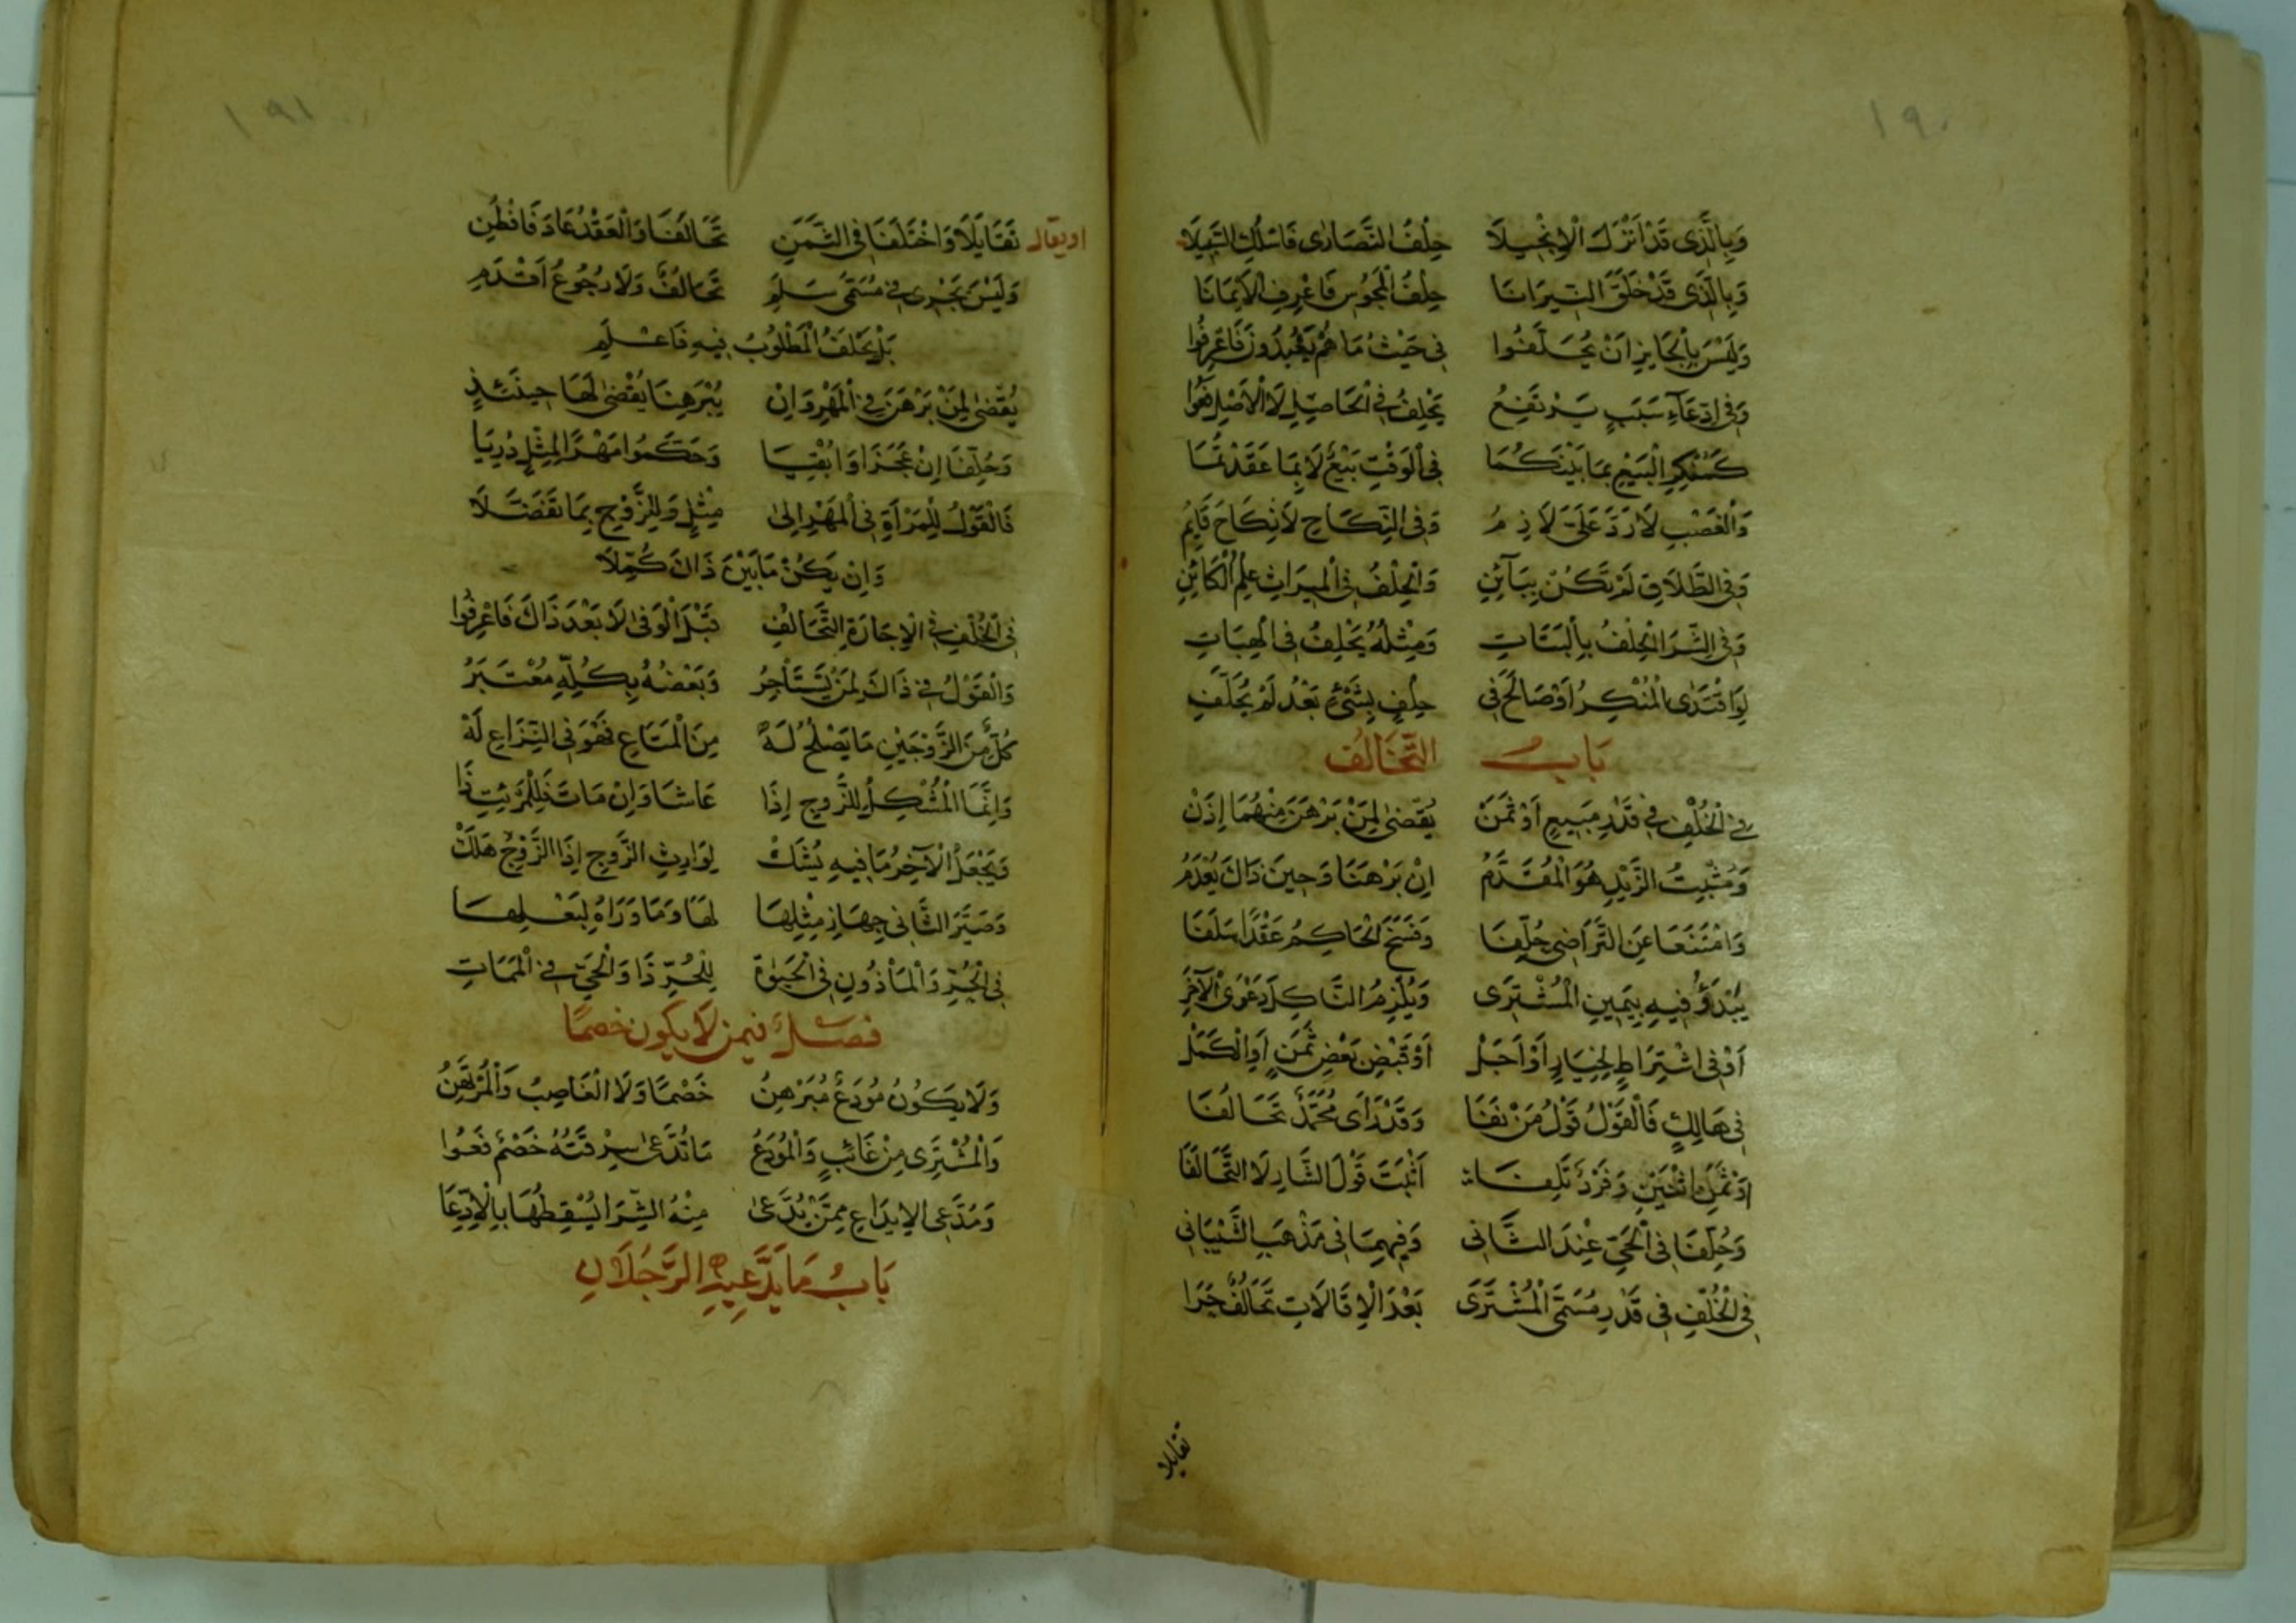 ١٩٠
وَبِالَّذِى قَدْ اَنْزَلَ الْاِنْجِيلَا حِلْفُ النَّصَارٰى فَاسْلُكِ السَّبِيلَا
وَبِالَّذِى قَدْ خَلَقَ النِّيرَانَا حِلْفُ الْمَجُوسِ فَاعْرِفِ الْاَيْمَانَا
وَلَيْسَ بِالْجَايِزِ اَنْ يُحَلَّفُوا فِى حَيْثُ مَا هُمْ يَعْبُدُونَ فَاعْرِفُوا
وَفِى ادِّعَاءِ سَبَبٍ يَرْتَفِعُ يَحْلِفُ فِى الْحَاصِلِ لَا الْاَصْلِ فَعُوا
كَمُنْكِرِ الْبَيْعِ بِمَا بَيْنَكُمَا فِى الْوَقْتِ بَيْعٌ لَا بِمَا عَقَدْتُمَا
وَالْغَصْبِ لَا رَدَّ عَلَىَّ لَازِمُ وَفِى النِّكَاحِ لَا نِكَاحَ قَايِمُ
وَفِى الطَّلَاقِ لَمْ تَكُنْ بِبَآئِنِ وَالْحِلْفُ فِى الْمِيرَاثِ عِلْمُ الْكَائِنِ
وَفِى الشِّرَا الْحِلْفُ بِالْبَتَاتِ وَمِثْلُهُ يَحْلِفُ فِى الْهِبَاتِ
لَوِ افْتَدَى الْمُنْكِرُ اَوْ صَالَحَ فِى حِلْفٍ بِشَىْءٍ بَعْدُ لَمْ يُحَلَّفِ
بَابُ التَّحَالُفِ
فِى الْخُلْفِ فِى قَدْرِ مَبِيعٍ اَوْ ثَمَنْ يُقْضٰى لِمَنْ بَرْهَنَ مِنْهُمَا اِذَنْ
وَمُثْبِتُ الزَّيْدِ هُوَ الْمُقَدَّمُ اِنْ بَرْهَنَا وَحِينَ ذَاكَ يُعْدَمُ
وَامْتَنَعَا عَنِ التَّرَاضِى حُلِّفَا وَفَسَخَ الْحَاكِمُ عَقْدًا سَلَفَا
يُبْدَؤُ فِيهِ بِيَمِينِ الْمُشْتَرِى وَيُلْزِمُ النَّاكِلَ دَعْوَى الْآخَرِ
اَوْ فِى اشْتِرَاطٍ لِخِيَارٍ اَوْ اَجَلْ اَوْ قَبْضِ بَعْضِ ثَمَنٍ اَوِ الْكَمَلْ
فِى هَالِكٍ فَالْقَوْلُ قَوْلُ مَنْ نَفَا وَقَدْ رَاَى مُحَمَّدٌ تَحَالُفَا
اَثْبَتَ قَوْلَ الشَّارِ لَا التَّحَالُفَا
وَحُلِّفَا فِى الْحَىِّ عِنْدَ الثَّانِى وَفِيهِمَا فِى مَذْهَبِ الشَّيْبَانِى
فِى الْخُلْفِ فِى قَدْرِ مُسَمَّى الْمُشْتَرَى بَعْدَ الْاِقَالَاتِ تَحَالُفٌ جَرَا
تقايلا
١٩١
او يقال تَقَايَلَا وَاخْتَلَفَا فِى الثَّمَنِ تَحَالَفَا وَالْعَقْدُ عَادَ فَافْطُنِ
وَلَيْسَ يَجْرِى فِى مُسَمَّى سَلَمِ تَحَالُفٌ وَلَا رُجُوعُ اَقْدَمِ
بَلْ يَحْلِفُ الْمَطْلُوبُ فِيهِ فَاعْلَمِ
يُقْضٰى لِمَنْ بَرْهَنَ فِى الْمَهْرِ وَاِنْ يُبْرَهِنَا يُقْضٰى لَهَا حِينَئِذٍ
وَحُلِّفَا اِنْ عَجَزَا وَابْقِيَا وَحَكَّمُوا مَهْرًا لِمِثْلٍ دُرِيَا
فَالْقَوْلُ لِلْمَرْاَةِ فِى الْمَهْرِ اِلٰى مِثْلٍ وَلِلزَّوْجِ بِمَا تَفَضَّلَا
وَاِنْ يَكُنْ مَا بَيْنَ ذَاكَ كُمِّلَا
فِى الْخُلْفِ فِى الْاِجَارَةِ التَّحَالُفُ قَبْلَ الْوَفٰى لَا بَعْدَ ذَاكَ فَاعْرِفُوا
وَالْقَوْلُ فِى ذَاكَ لِمَنْ يَسْتَاْجِرُ وَبَعْضُهُ بِكُلِّهِ مُعْتَبَرُ
كُلٌّ مِنَ الزَّوْجَيْنِ مَا يَصْلُحُ لَهْ مِنَ الْمَتَاعِ فَهْوَ فِى النِّزَاعِ لَهْ
وَاِنَّمَا الْمُشْكِلُ لِلزَّوْجِ اِذَا عَاشَا وَاِنْ مَاتَ فَلِلْمَرْءَةِ ذَا
وَيَجْعَلُ الْآخِرُ مَا فِيهِ يُشَكْ لِوَارِثِ الزَّوْجِ اِذَا الزَّوْجُ هَلَكْ
وَصَيَّرَ الثَّانِى جِهَازَ مِثْلِهَا لَهَا وَمَا وَرَاهُ لِبَعْلِهَا
فِى الْحُرِّ وَالْمَاْذُونِ فِى الْحَيٰوةِ لِلْحُرِّ ذَا وَالْحَىِّ فِى الْمَمَاتِ
فصل فيمن لا يكون خصمًا
وَلَا يَكُونُ مُودَعٌ مُبَرْهِنُ خَصْمًا وَلَا الْغَاصِبُ وَالْمُرْتَهِنُ
وَالْمُشْتَرِى مِنْ غَائِبٍ وَالْمُودَعُ مَا تُدَّعٰى سِرْقَتُهُ خَصْمٌ فَعُوا
وَمُدَّعِى الْاِيدَاعِ مِمَّنْ يُدَّعٰى مِنْهُ الشِّرَا يُسْقِطُهَا بِالْاِدِّعَا
بَابُ مَا يَدَّعِيهِ الرَّجُلَانِ